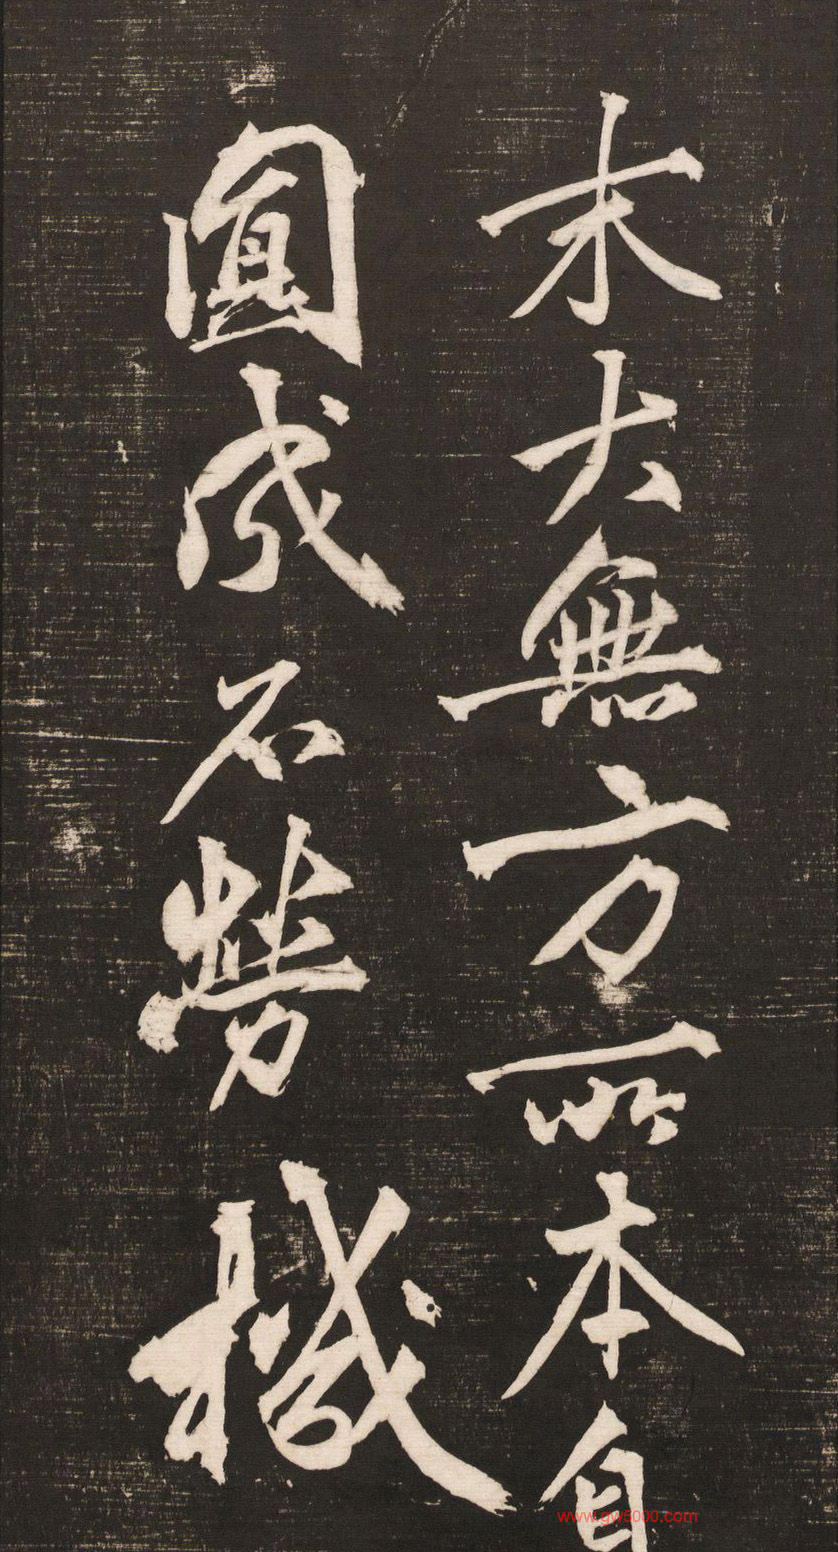 末大無方所本自
圓成不勞機
www.gw5000.com